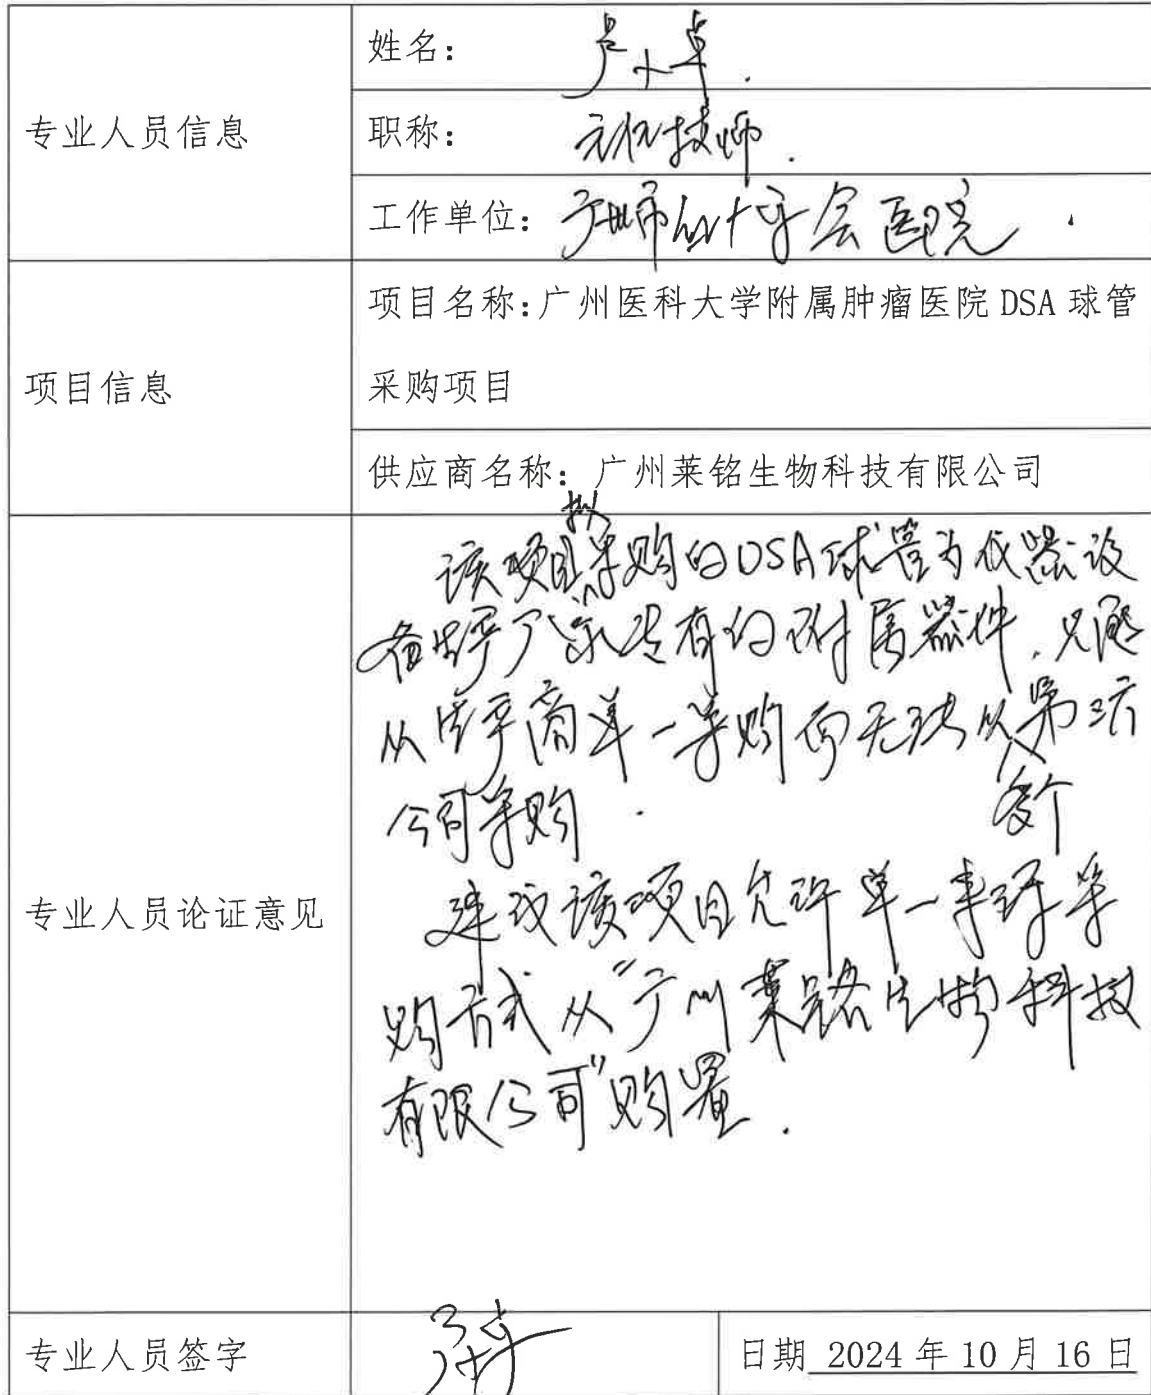 专业人员信息
姓名：卢小卓.
职称：主任技师.
工作单位：广州市红十字会医院.
项目信息
项目名称：广州医科大学附属肿瘤医院 DSA 球管
采购项目
供应商名称：广州莱铭生物科技有限公司
专业人员论证意见
该项目拟采购的DSA球管为仪器设
备生产厂家专有的附属器件,只能
从生产商单一采购而无法从第三方
多个
公司采购.
建议该项目允许单一来源采
购方式从"广州莱铭生物科技
有限公司"购置.
专业人员签字
日期 2024 年 10 月 16 日